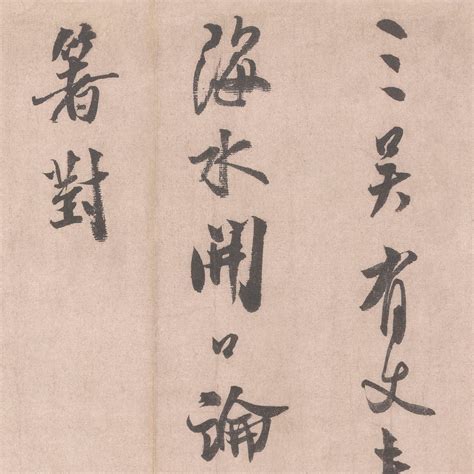 三吳有丈
海水開口論
箸對